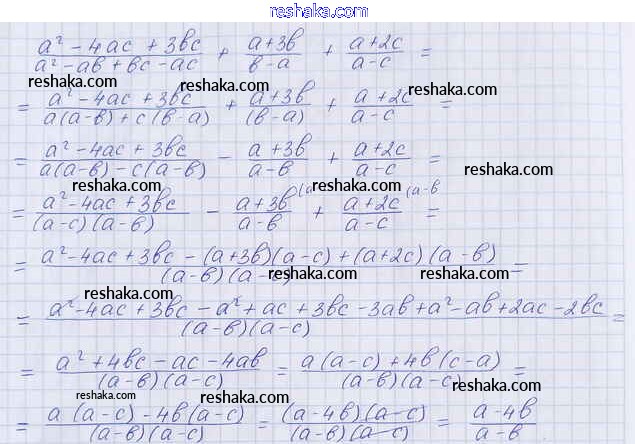 reshaka.com
a² - 4ac + 3bc / a² - ab + bc - ac + a + 3b / b - a + a + 2c / a - c =
reshaka.com reshaka.com
= a² - 4ac + 3bc / a(a - b) + c(b - a) + a + 3b / (b - a) + a + 2c / a - c =
reshaka.com reshaka.com
= a² - 4ac + 3bc / a(a - b) - c(a - b) - a + 3b / a - b + a + 2c / a - c =
reshaka.com
reshaka.com reshaka.com
= a² - 4ac + 3bc / (a - c)(a - b) - a + 3b / a - b + a + 2c / a - c (a - b =
reshaka.com reshaka.com
= a² - 4ac + 3bc - (a + 3b)(a - c) + (a + 2c)(a - b) / (a - b)(a - c) =
reshaka.com reshaka.com
reshaka.com
= a² - 4ac + 3bc - a² + ac + 3bc - 3ab + a² - ab + 2ac - 2bc / (a - b)(a - c) =
reshaka.com reshaka.com
= a² + 4bc - ac - 4ab / (a - b)(a - c) = a(a - c) + 4b(c - a) / (a - b)(a - c) =
reshaka.com reshaka.com
= a(a - c) - 4b(a - c) / (a - b)(a - c) = (a - 4b)(a - c) / (a - b)(a - c) = a - 4b / a - b